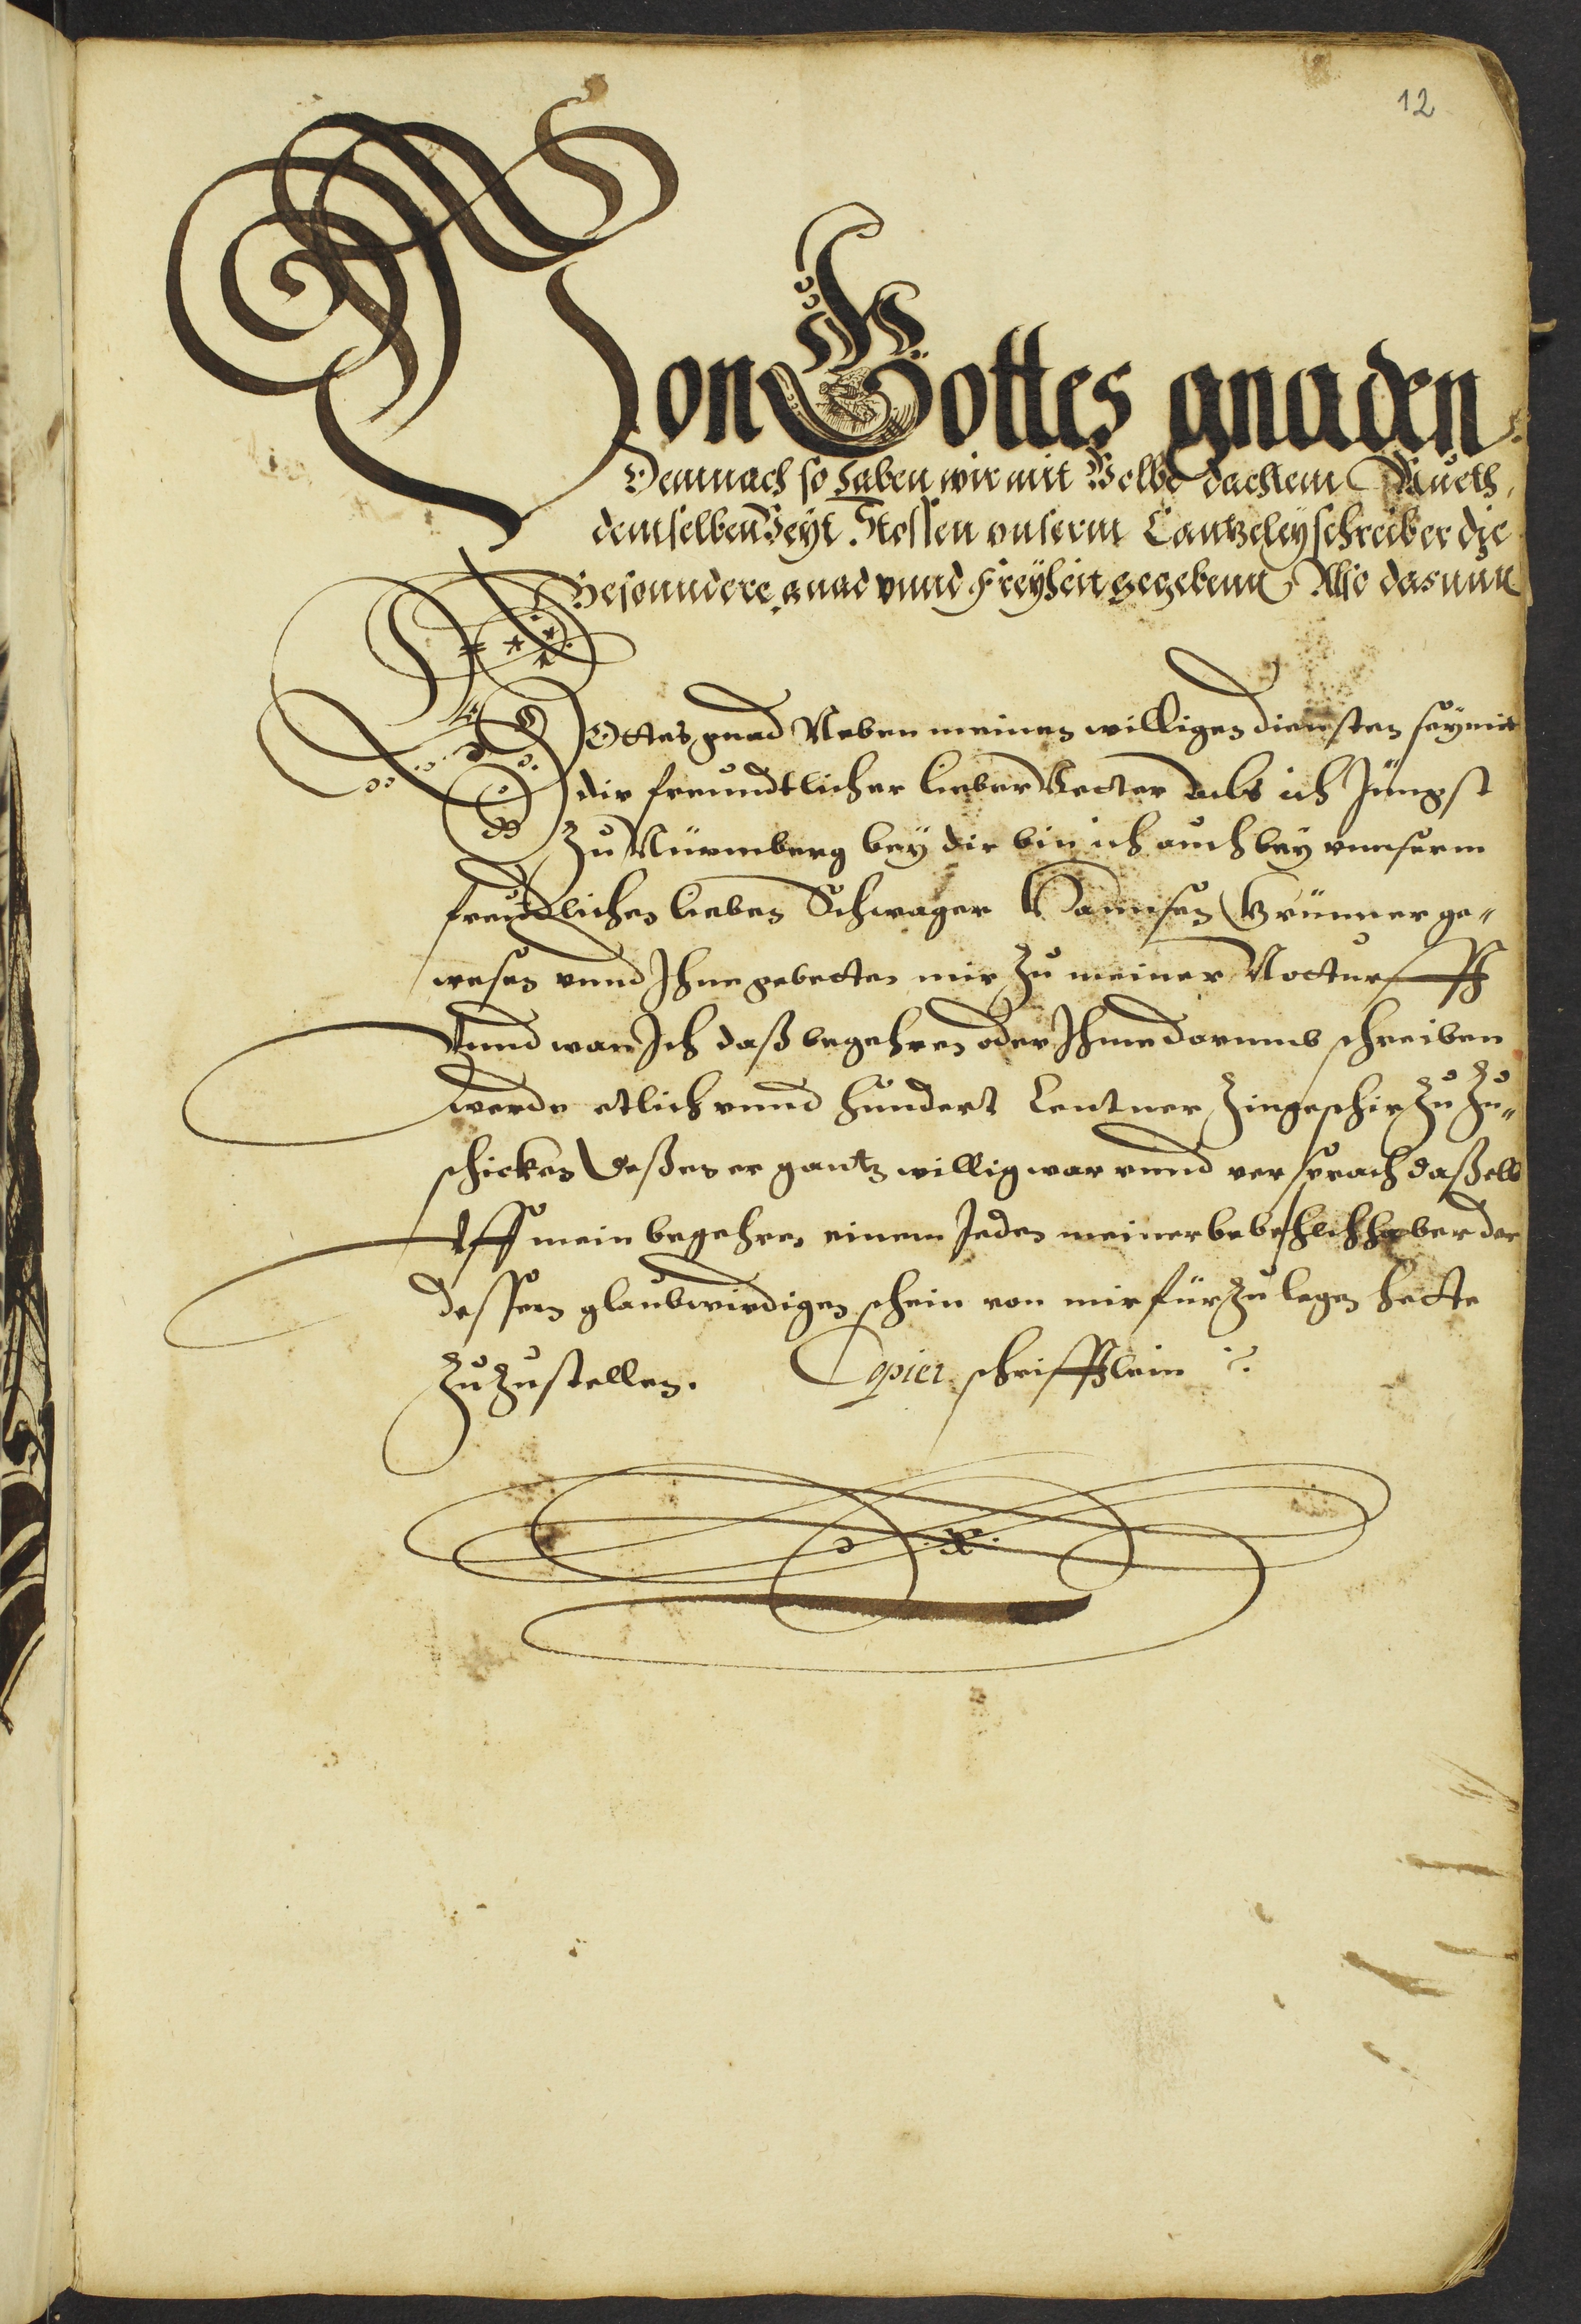 12
Von Gottes gnaden
Demnach so haben wir mit Wolbedachtem Mueth,
demselben Veyt Stossen vnserm Cantzeleyschreiber die
Besonndere gnad vnnd Freyheit gegebenn, Also das nun
GOttes gnad Neben meinen willigen diensten sey mit
dir freundtlicher lieber Vetter als ich Jüngst
zu Nürmberg bey dir bin ich auch bey vnnserm
freundtlichen lieben Schwager Hannsen Brünner ge„
wesen vnnd Ihne gebetten mir zu meiner Notturfft
Vnnd wan Ich daß begehren oder Ihme darumb schreiben
werde etlich vnnd hundert Centner Zingeschir zu zu„
schicken Deßen er gantz willig war vnnd versprach daßelb
Vff mein begehren einem Jeden meiner bevehlchhaber der
dessen glaubwirdigen schein von mir für zu legen hette
zu zustellen. Copier schrifftlein